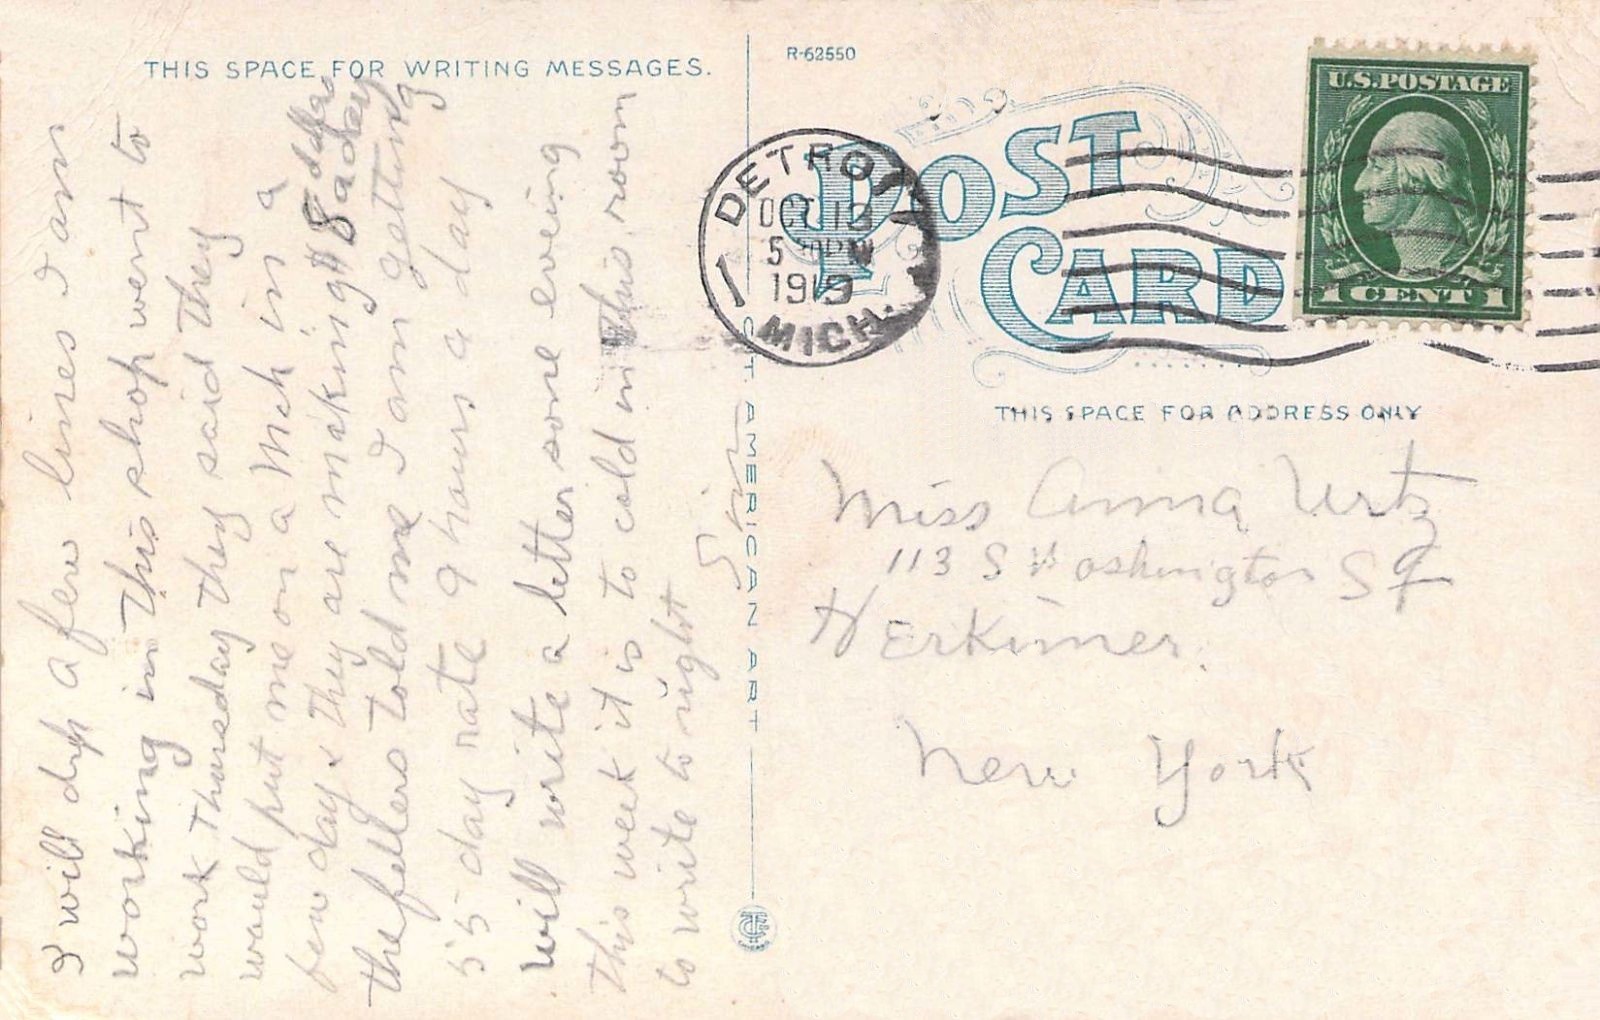 THIS SPACE FOR WRITING MESSAGES.
I will drop a few lines I am
working in this shop went to
work Thuresday they said they
would put me on a Mch in a
few days they are making $8 a day
the fellers told me I am getting
55 day rate 9 hours a day
will write a letter some evening
this week it is to cold in this room
to write to night
R-62550
POST CARD
DETROIT
OCT 13
PM
1919
MICH.
1
U.S. POSTAGE
1 CENT 1
THIS SPACE FOR ADDRESS ONLY
Miss Anna Urtz
113 S Washington St
Herkimer.
New York
C.T. AMERICAN ART